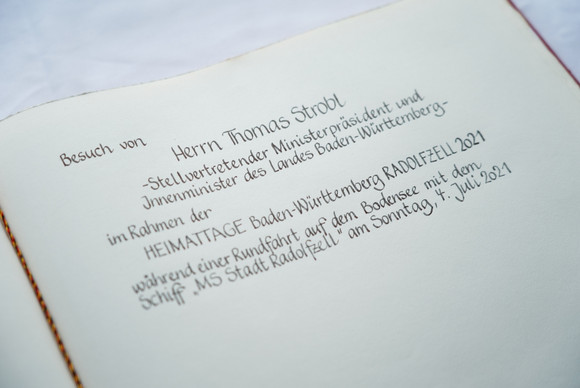 Besuch von Herrn Thomas Strobl
-Stellvertretender Ministerpräsident und
Innenminister des Landes Baden-Württemberg-
im Rahmen der
HEIMATTAGE Baden-Württemberg RADOLFZELL 2021
während einer Rundfahrt auf dem Bodensee mit dem
Schiff „MS Stadt Radolfzell" am Sonntag, 4. Juli 2021